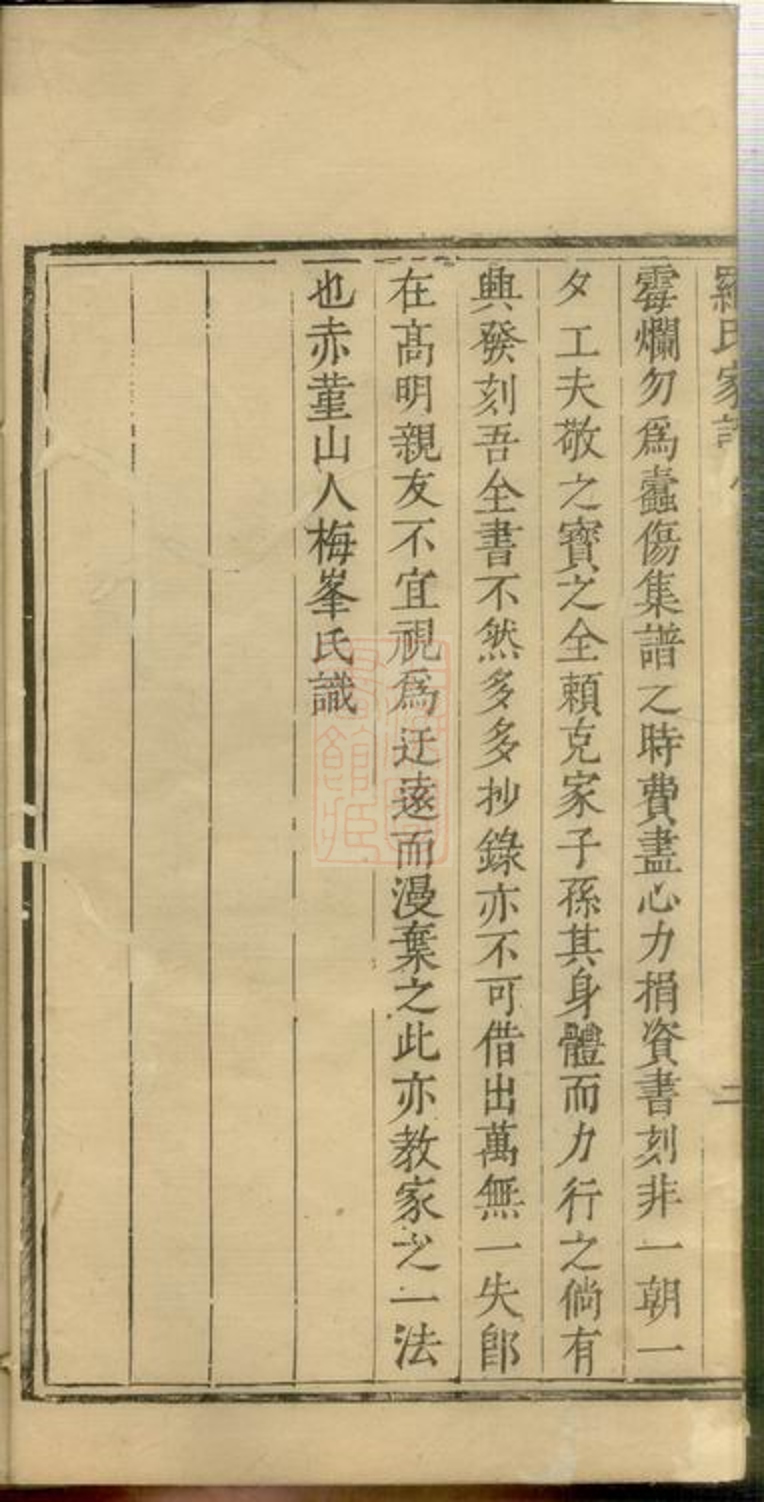 羅氏家譜 二
霉爛勿爲蠹傷集譜之時費盡心力捐資書刻非一朝一
夕工夫敬之寳之全賴克家子孫其身體而力行之倘有
興發刻吾全書不然多多抄錄亦不可借出萬無一失卽
在髙明親友不宜視爲迂遠而漫棄之此亦教家之一法
也赤菫山人梅峯氏識